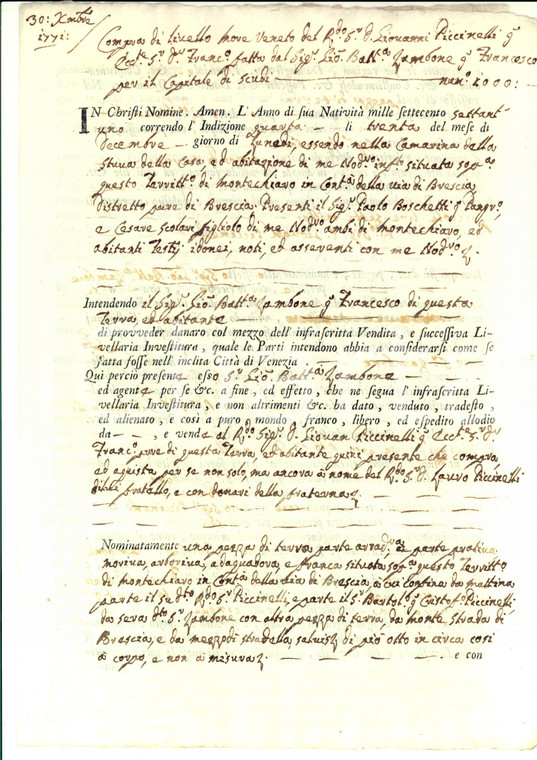 30: Xmbre
1771:
Compra di livello more Veneto del Rdo Sr D. Giovanni Piccinelli q
Ecctе Sr Dr Franco fatta dal Sigr Gio: Batta Zambone q Francesco
per il Capitale di scudi — num: 1000:—
IN Christi Nomine. Amen. L' Anno di sua Natività mille settecento settant
uno correndo l' Indizione quarta — li trenta del mese di
Decembre — giorno di Lunedì, essendo nella Camarina della
stuva della Casa, ed abitazione di me Nodro infto situata sopa
questo Territto di Montechiaro in Conta della via di Brescia
Distretto pure di Brescia. Presenti il Sigr Paolo Boschetti q
e Cesare Scolari figliolo di me Nodro ambi di Montechiaro, ed
abitanti Testij idonei, noti, ed asserenti con me Nodro
Intendendo il Sigr Gio: Batta Zambone q Francesco di questa
Terra, ed abitante
di provveder danaro col mezzo dell' infrascritta Vendita, e successiva Li-
vellaria Investitura, quale le Parti intendono abbia a considerarsi come se
fatta fosse nell' inclita Città di Venezia.
Qui perciò presente esso Sr Gio: Batta Zambone —
ed agente per se &c. a fine, ed effetto, che ne segua l' infrascritta Li-
vellaria Investitura, e non altrimenti &c. ha dato, venduto, tradesto,
ed alienato, e così a puro, mondo, franco, libero, ed espedito allodio
da — —, e vende al Rdo Sigr D. Giovan Piccinelli q Ecctе Sr Dr
Franco pure di questa Terra, ed abitante quivi presente che compra,
ed aquista per se non solo, ma ancora à nome del Rdo Sr D. Lauro Piccinelli
di lui fratello, e con denari della fraterna
Nominatamente una pezza di terra parte arradva, e parte prativa,
moriva, arboriva, adaquadora, e franca situata sopa questo Territto
di Montechiaro in Conta della via di Brescia, à cui confina da mattina
parte il sudto Rdo Sr Piccinelli, e parte il Sr Bartolo q Cristofo Piccinelli
da sera dto Sr Zambone con altra pezza di terra, da monte strada di
Brescia, e da mezzodì stradella, salvis di più otto in circa così
à corpo, e non à misura — — — e con